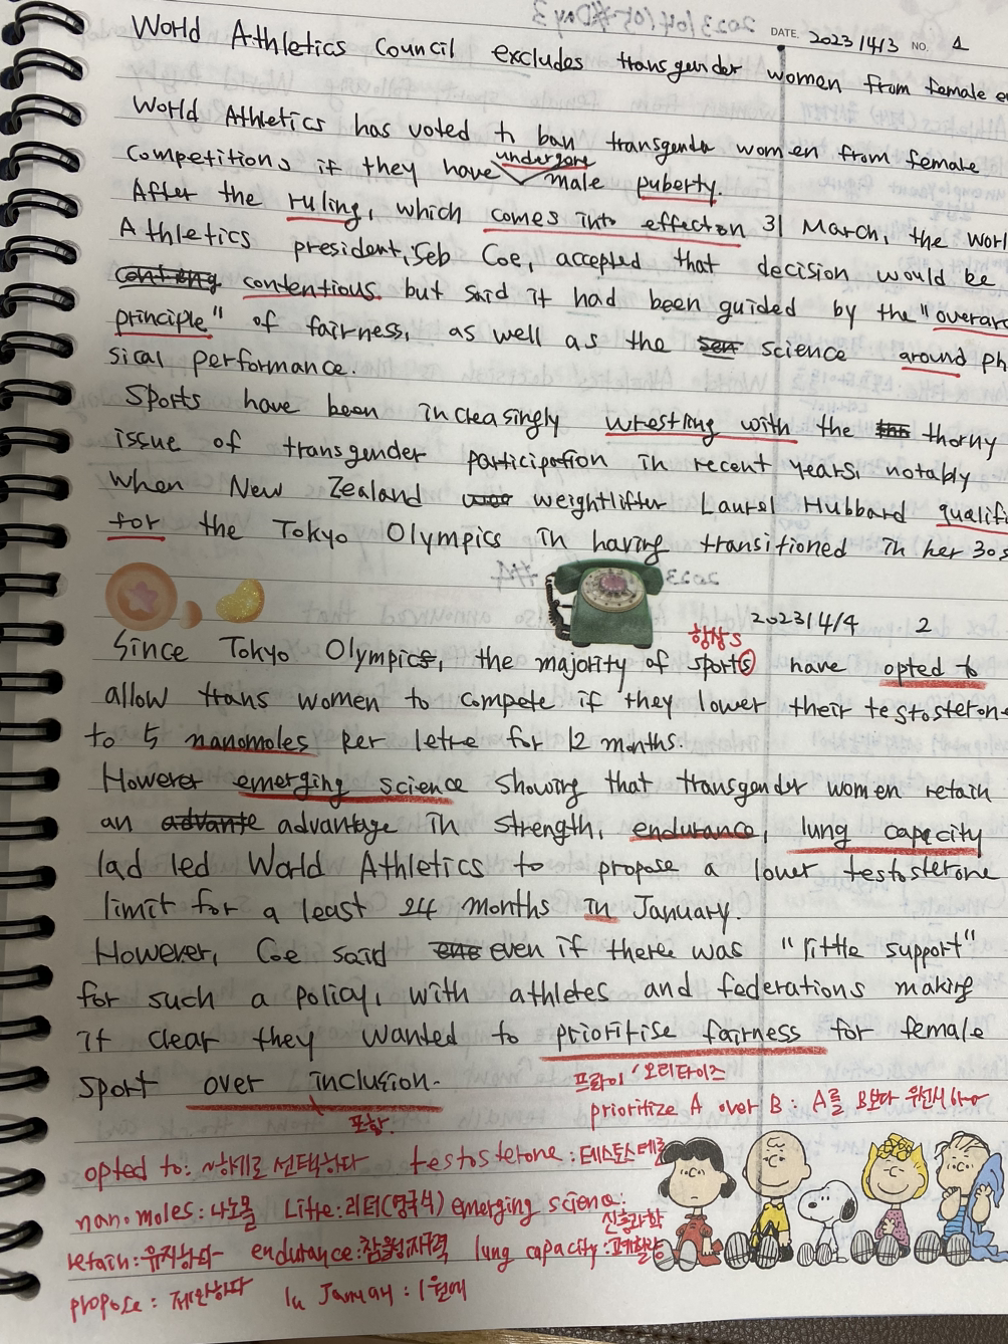 DATE. 2023/4/3 NO. 1
World Athletics Council excludes transgender women from female
World Athletics has voted to ban transgender women from female
competitions if they have undergone male puberty.
After the ruling, which comes into effect on 31 March, the
Athletics president, Seb Coe, accepted that decision would be
contentious. but said it had been guided by the "
principle" of fairness, as well as the science around
sical performance.
Sports have been increasingly wrestling with the thorny
issue of transgender participation in recent years, notably
when New Zealand weightlifter Laurel Hubbard
for the Tokyo Olympics in having transitioned in her 30s
2023/4/4 2
항상 s
Since Tokyo Olympics, the majority of sports have opted to
allow trans women to compete if they lower their testosterone
to 5 nanomoles per letre for 12 months.
However emerging science showing that transgender women retain
an advante advantage in strength, endurance, lung capacity
lad led World Athletics to propose a lower testosterone
limit for a least 24 months in January.
However, Coe said even if there was "little support"
for such a policy, with athletes and federations making
it clear they wanted to prioritise fairness for female
sport over inclusion.
프라이'오리타이즈
포함.
prioritize A over B : A를 B보다 우선시하여
opted to : ~하기로 선택하다 testosterone : 테스토스테론
nanomoles : 나노몰 Litre : 리터(영국식) emerging science : 신흥과학
retain : 유지하다 endurance : 지구력 lung capacity :
propose : 제안하다 In January : 1월에